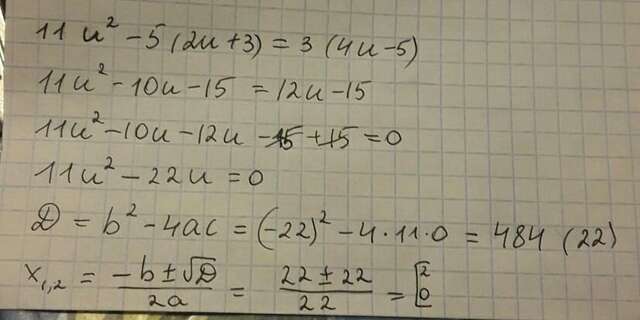 11u² - 5(2u+3) = 3(4u-5)
11u² - 10u - 15 = 12u - 15
11u² - 10u - 12u - 15 + 15 = 0
11u² - 22u = 0
D = b² - 4ac = (-22)² - 4·11·0 = 484 (22)
x₁,₂ = (-b ± √D)/(2a) = (22 ± 22)/22 = [2 0